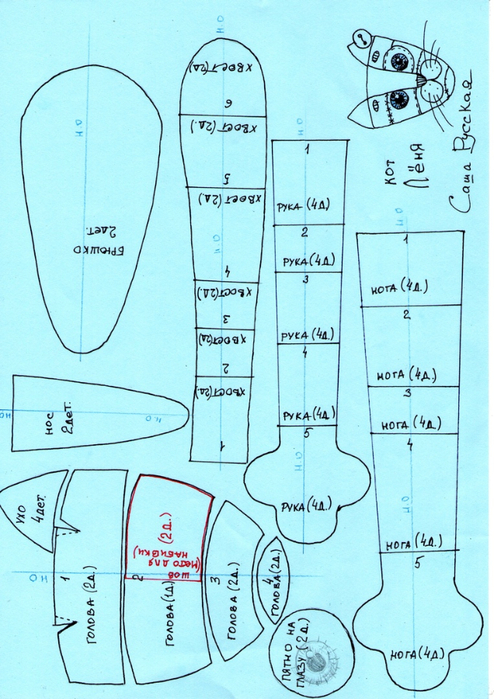 КОТ
ЛЁНЯ
Саша Русская
Н.О
БРЮШКО
2дет.
Н.О
ХВОСТ(2Д)
6
ХВОСТ(2Д.)
5
ХВОСТ(2Д)
4
Н.О
ХВОСТ(2Д.)
3
ХВОСТ(2Д)
2
ХВОСТ(2Д)
1
1
РУКА (4Д)
2
РУКА (4Д.)
3
РУКА (4Д.)
4
РУКА(4Д.)
5
Н.О
РУКА(4Д.)
Н.О
1
НОГА (4Д.)
2
НОГА(4Д.)
3
НОГА (4Д.)
4
Н.О
НОГА(4Д.)
5
НОГА(4Д)
НОС
2дет.
Н.О
Н.О
УХО
4дет.
Н.О
1
ГОЛОВА (2Д.)
2
ГОЛОВА(1Д)
(2Д.)
шов
(место для
набивки)
3
ГОЛОВА (2Д.)
4
ГОЛОВА(2Д)
ПЯТНО НА
ГЛАЗУ (2Д.)